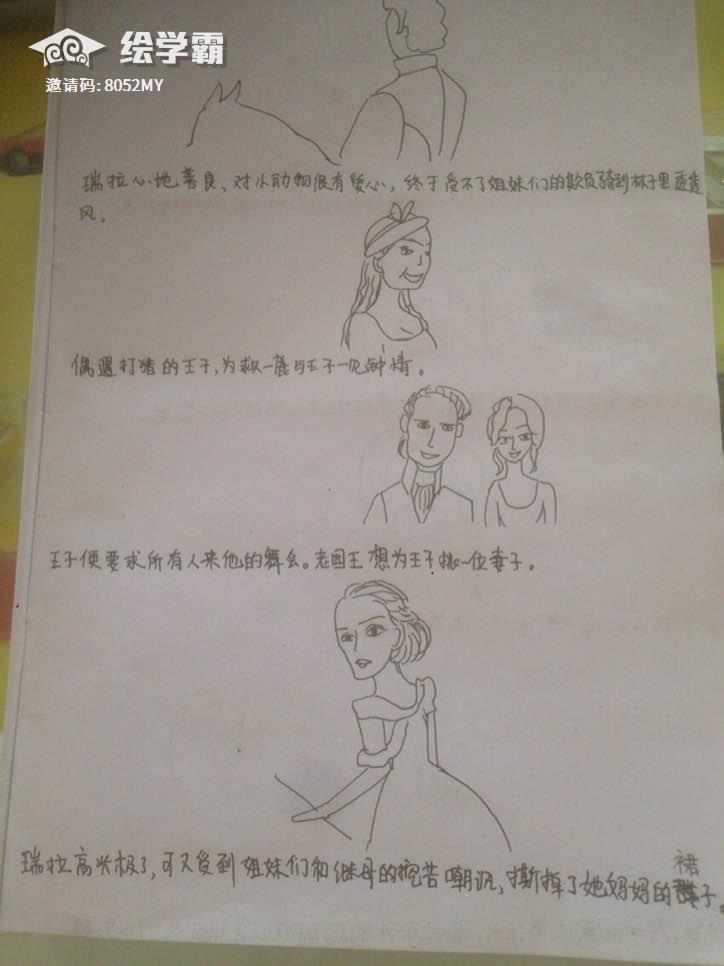 绘学霸
邀请码: 8052MY
瑞拉心地善良、对小动物很有爱心，终于受不了姐妹们的欺负骑到林子里透透
风。
偶遇打猎的王子，为救一鹿与王子一见钟情。
王子便要求所有人来他的舞会。老国王想为王子挑一位妻子。
瑞拉高兴极了，可又受到姐妹们和继母的挖苦嘲讽，撕掉了她妈妈的裙子。